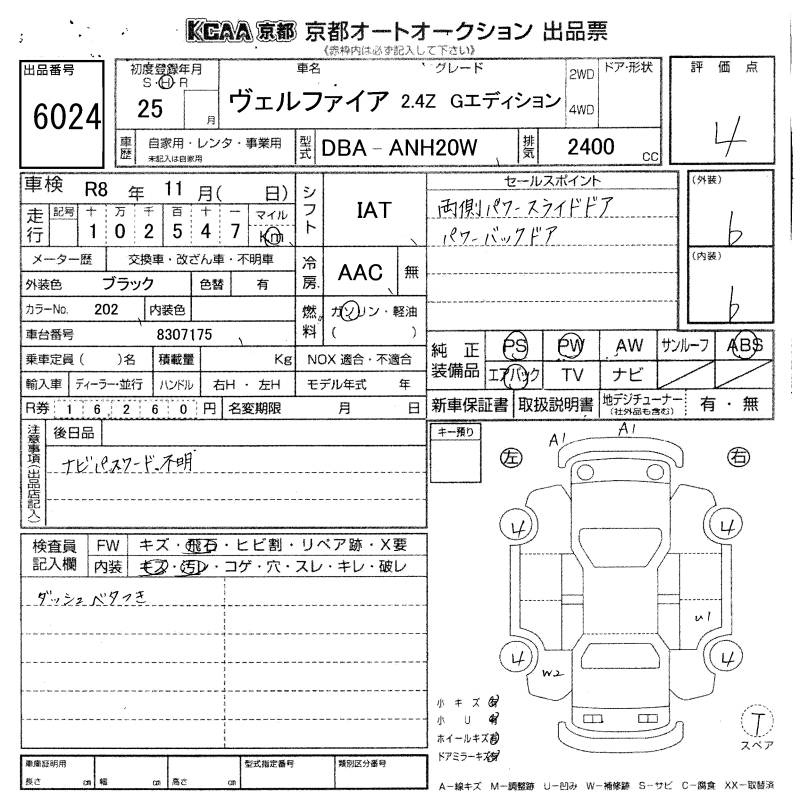 KCAA 京都 京都オートオークション 出品票
《赤枠内は必ず記入して下さい》
出品番号
6024
初度登録年月
S・H・R
25 月
車名 グレード
ヴェルファイア 2.4Z Gエディション
2WD
4WD
ドア・形状
評価点
4
車歴
自家用・レンタ・事業用
未記入は自家用
型式 DBA－ANH20W
排気 2400 CC
車検 R8 年 11 月( 日)
走行 記号 十 万 千 百 十 一 マイル
1 0 2 5 4 7 Km
メーター歴 交換車・改ざん車・不明車
外装色 ブラック 色替 有
カラーNo. 202 内装色
車台番号 8307175
乗車定員( )名 積載量 Kg
輸入車 ディーラー・並行 ハンドル 右H・左H
R券 1 6 2 6 0 円 名変期限 月 日
シフト IAT
冷房 AAC 無
燃料 ガソリン・軽油
( )
NOX 適合・不適合
モデル年式 年
セールスポイント
両側パワースライドドア
パワーバックドア
(外装)
b
(内装)
b
純正装備品 PS PW AW サンルーフ ABS
エアバック TV ナビ
新車保証書 取扱説明書 地デジチューナー(社外品も含む) 有・無
注意事項(出品店記入)
後日品
ナビパスワード不明
キー預り
A1 A1
左 右
4 4
U1
4 4
W2
検査員記入欄
FW キズ・飛石・ヒビ割・リペア跡・X要
内装 キズ・汚レ・コゲ・穴・スレ・キレ・破レ
ダッシュベタつき
小キズ
小U
ホイールキズ
ドアミラーキズ
T
スペア
車庫証明用
長さ cm 幅 cm 高さ cm
型式指定番号
類別区分番号
A－線キズ M－調整跡 U－凹み W－補修跡 S－サビ C－腐食 XX－取替済